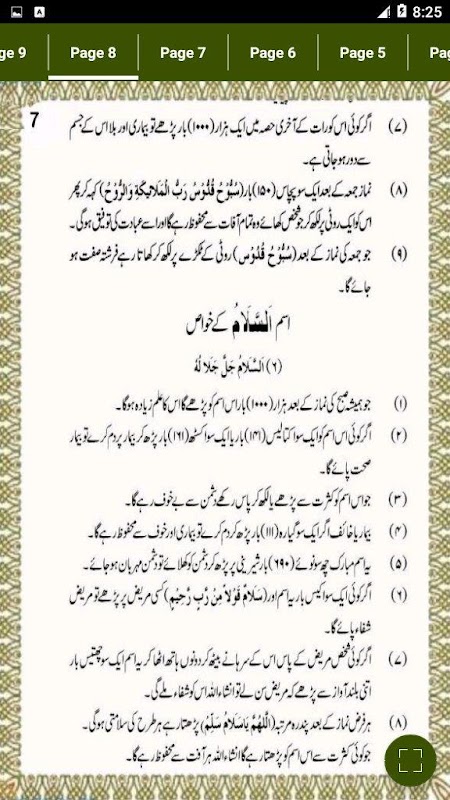 8:25
ge 9 Page 8 Page 7 Page 6 Page 5 Pag
7
(۷) اگر کوئی اس کو رات کے آخری حصہ میں ایک ہزار (۱۰۰۰) بار پڑھے تو بیماری اور بلا اس کے جسم
سے دور ہو جاتی ہے۔
(۸) نماز جمعہ کے بعد ایک سو پچاس (۱۵۰) بار (سُبُّوْحٌ قُدُّوْسٌ رَبُّ الْمَلَائِكَةِ وَالرُّوْحِ) کہہ کر پھر
اس کو ایک روٹی پر لکھ کر جو شخص کھائے وہ تمام آفات سے محفوظ رہے گا اور اسے عبادت کی توفیق ہوگی۔
(۹) جو جمعہ کی نماز کے بعد (سُبُّوْحٌ قُدُّوْسٌ) روٹی کے ٹکڑے پر لکھ کر کھاتا رہے فرشتہ صفت ہو
جائے گا۔
اسم اَلسَّلَامُ کے خواص
(۶) اَلسَّلَامُ جَلَّ جَلَا لُهُ
(۱) جو ہمیشہ صبح کی نماز کے بعد ہزار (۱۰۰۰) بار اس اسم کو پڑھے گا اس کا علم زیادہ ہوگا۔
(۲) اگر کوئی اس اسم کو ایک سو اکتالیس (۱۴۱) بار یا ایک سو اکسٹھ (۱۶۱) بار پڑھ کر بیمار پر دم کرے تو بیمار
صحت پائے گا۔
(۳) جو اس اسم کو کثرت سے پڑھے یا لکھ کر پاس رکھے دشمن سے بے خوف رہے گا۔
(۴) بیمار یا خائف اگر ایک سو گیارہ (۱۱۱) بار پڑھ کر دم کرے تو بیماری اور خوف سے محفوظ رہے گا۔
(۵) یہ اسم مبارک چھ سو نوئے (۶۹۰) بار شیرینی پر پڑھ کر دشمن کو کھلائے تو دشمن مہربان ہو جائے۔
(۶) اگر کوئی ایک سو اکیس بار یہ اسم اور (سَلَامٌ قَوْلًا مِّنْ رَّبٍّ رَّحِيْمٍ) کسی مریض پر پڑھے تو مریض
شفاء پائے گا۔
(۷) اگر کوئی شخص مریض کے پاس اس کے سرہانے بیٹھ کر دونوں ہاتھ اٹھا کر یہ اسم ایک سو چھتیس بار
اتنی بلند آواز سے پڑھے کہ مریض سن لے تو انشاء اللہ اس کو شفاء ملے گی۔
(۸) ہر فرض نماز کے بعد پندرہ مرتبہ (اَللّٰهُمَّ يَا سَلَامُ سَلِّمْ) پڑھتا رہے ہر طرح کی سلامتی ہوگی۔
جو کوئی کثرت سے اس اسم کو پڑھتا رہے گا انشاء اللہ ہر آفت سے محفوظ رہے گا۔